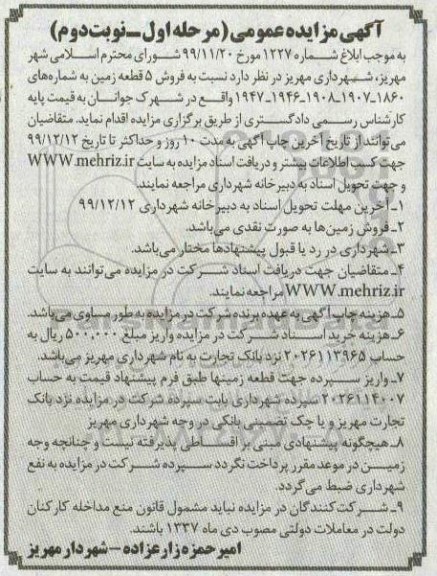 آگهی مزایده عمومی (مرحله اول ـ نوبت دوم)
به موجب ابلاغ شماره ۱۲۲۷ مورخ ۹۹/۱۱/۲۰ شورای محترم اسلامی شهر
مهریز، شهرداری مهریز در نظر دارد نسبت به فروش ۵ قطعه زمین به شماره‌های
۱۸۶۰ـ۱۹۰۷ـ۱۹۰۸ـ۱۹۴۶ـ۱۹۴۷ واقع در شهرک جوانان به قیمت پایه
کارشناس رسمی دادگستری از طریق برگزاری مزایده اقدام نماید. متقاضیان
می‌توانند از تاریخ آخرین چاپ آگهی به مدت ۱۰ روز و حداکثر تا تاریخ ۹۹/۱۲/۱۲
جهت کسب اطلاعات بیشتر و دریافت اسناد مزایده به سایت WWW.mehriz.ir
و جهت تحویل اسناد به دبیرخانه شهرداری مراجعه نمایند.
۱ـ آخرین مهلت تحویل اسناد به دبیرخانه شهرداری ۹۹/۱۲/۱۲
۲ـ فروش زمین‌ها به صورت نقدی می‌باشد.
۳ـ شهرداری در رد یا قبول پیشنهادها مختار می‌باشد.
۴ـ متقاضیان جهت دریافت اسناد شرکت در مزایده می‌توانند به سایت
WWW.mehriz.ir مراجعه نمایند.
۵ـ هزینه چاپ آگهی به عهده برنده شرکت در مزایده به طور مساوی می‌باشد.
۶ـ هزینه خرید اسناد شرکت در مزایده واریز مبلغ ۵۰۰,۰۰۰ ریال به
حساب ۲۰۲۶۱۱۳۹۶۵ نزد بانک تجارت به نام شهرداری مهریز می‌باشد.
۷ـ واریز سپرده جهت قطعه زمینها طبق فرم پیشنهاد قیمت به حساب
۲۰۲۶۱۱۴۰۰۷ سپرده شهرداری بابت سپرده شرکت در مزایده نزد بانک
تجارت مهریز و یا چک تضمینی بانکی در وجه شهرداری مهریز
۸ـ هیچگونه پیشنهادی مبنی بر اقساطی پذیرفته نیست و چنانچه وجه
زمین در موعد مقرر پرداخت نگردد سپرده شرکت در مزایده به نفع
شهرداری ضبط می‌گردد.
۹ـ شرکت‌کنندگان در مزایده نباید مشمول قانون منع مداخله کارکنان
دولت در معاملات دولتی مصوب دی ماه ۱۳۳۷ باشند.
امیر حمزه زارعزاده – شهردار مهریز